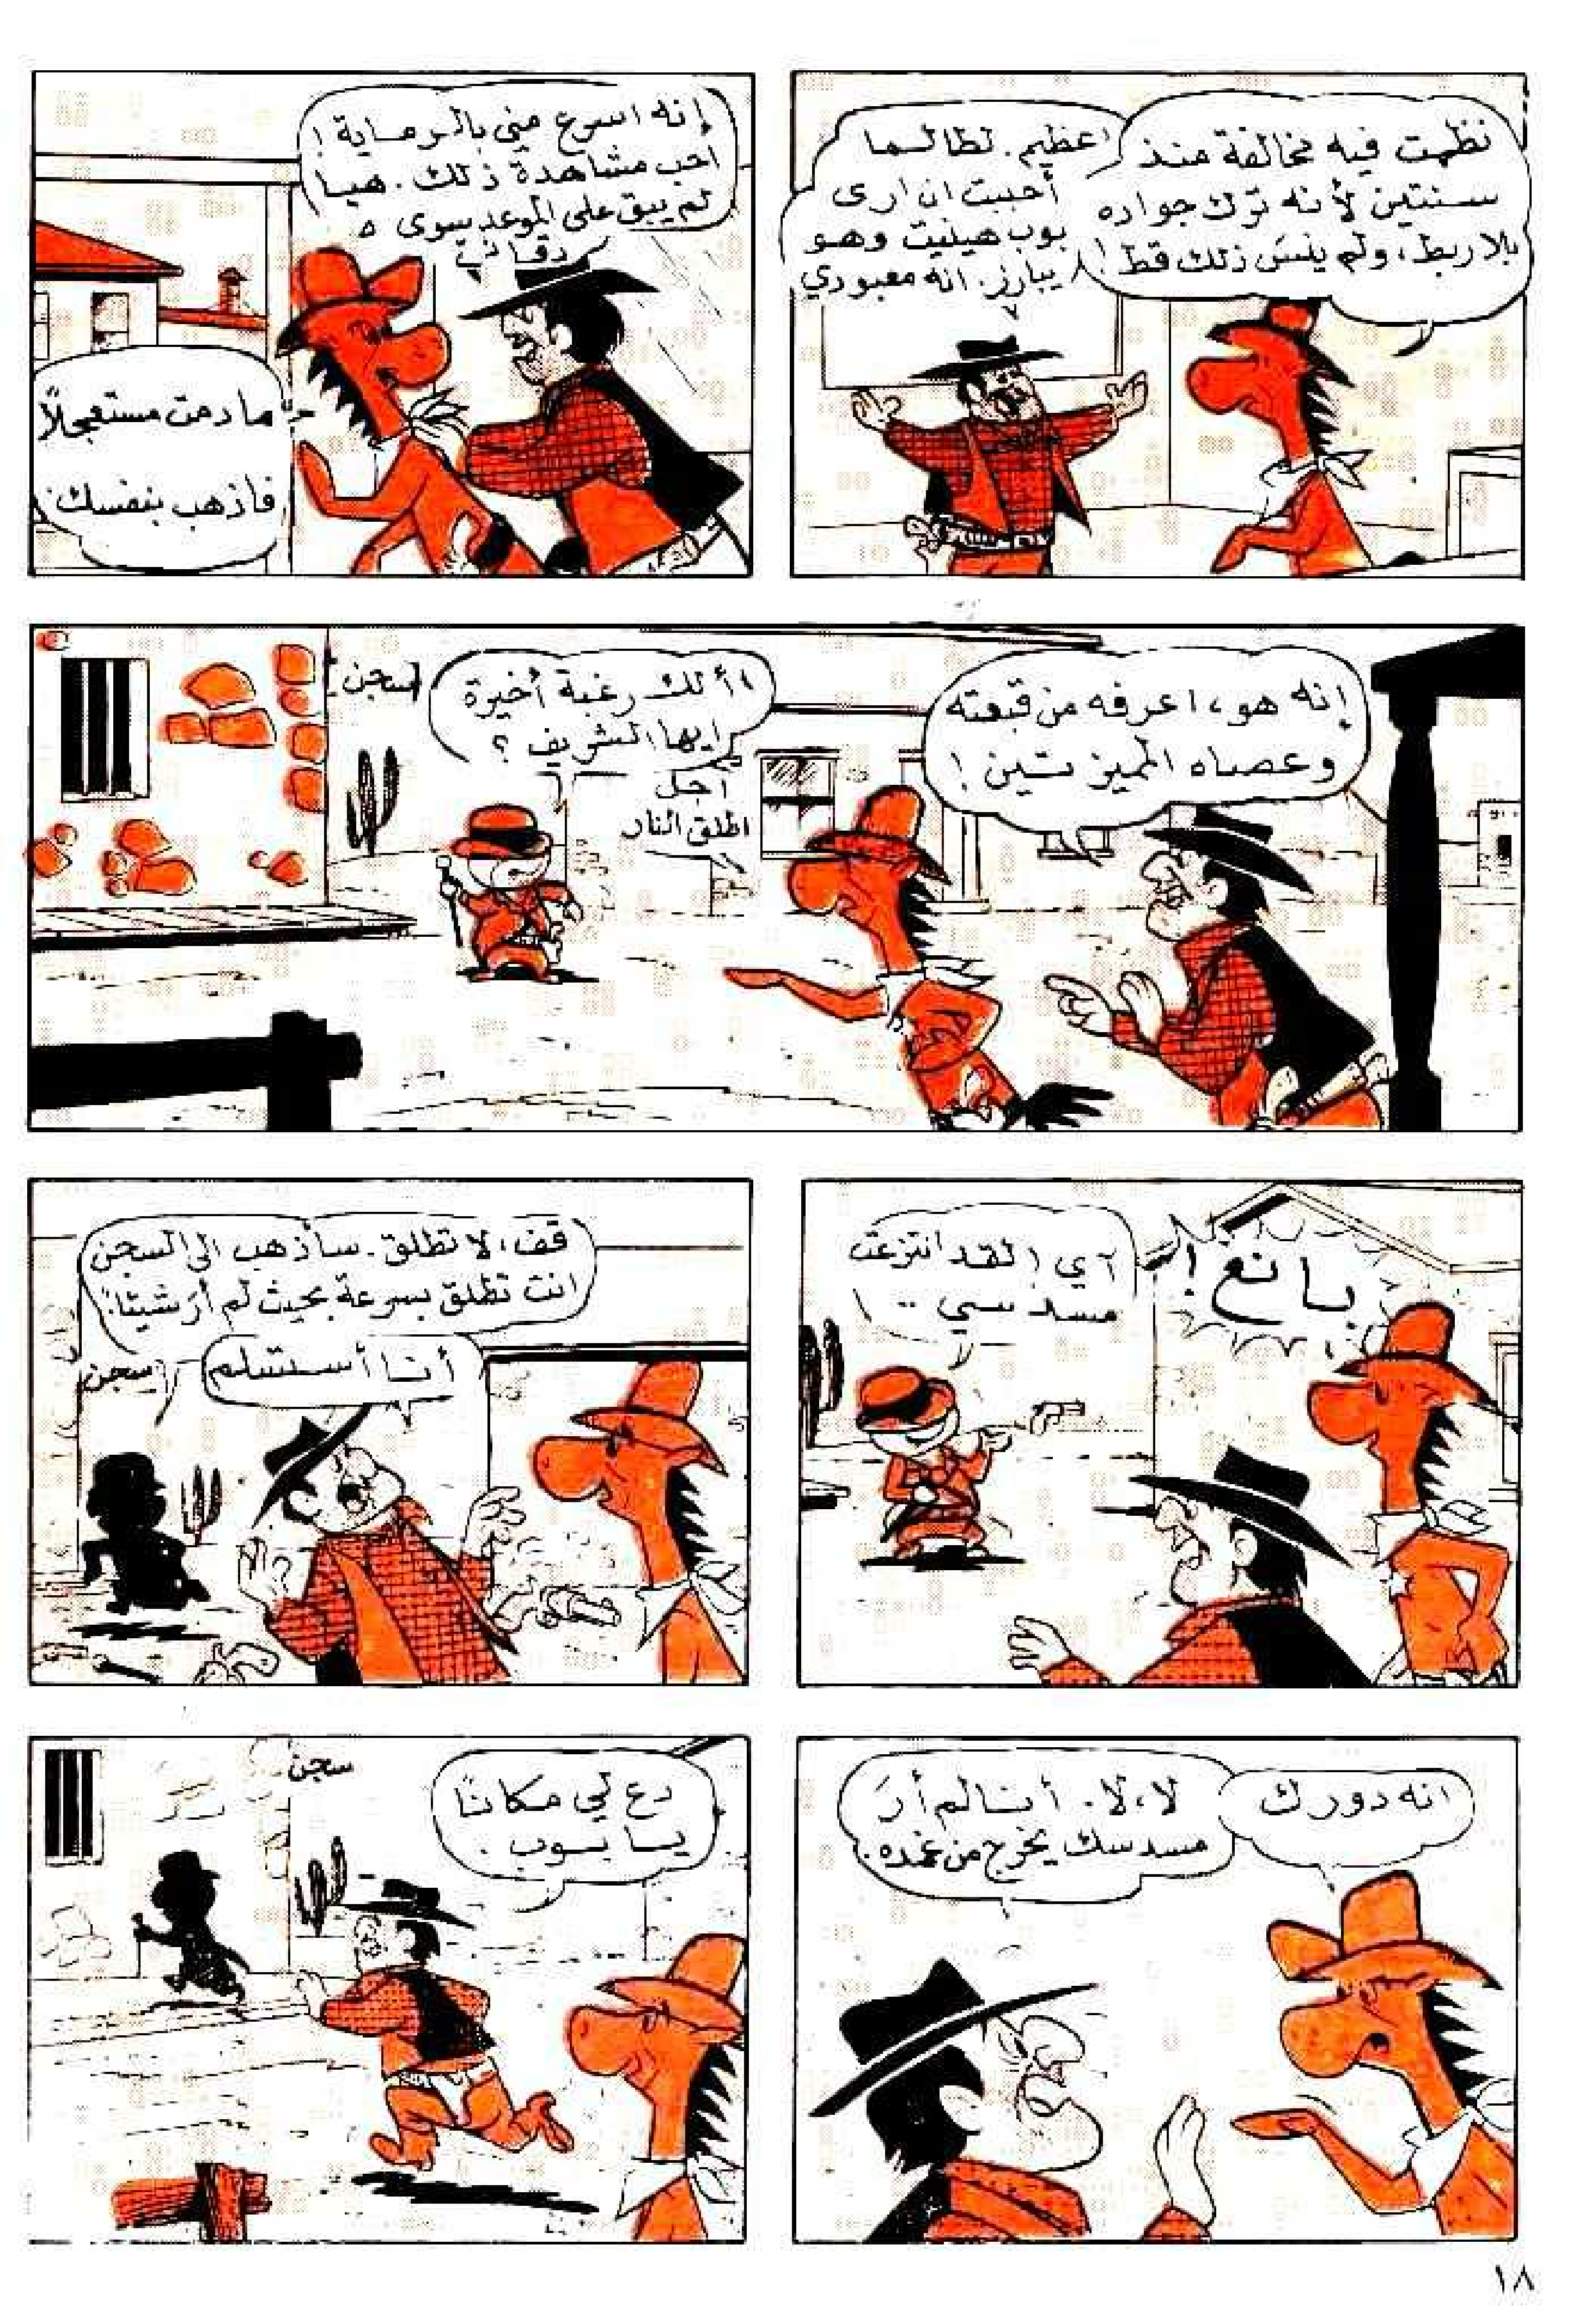 نظمت فيه مخالفة منذ
سنتين لأنه ترك جواده
بلا ربط، ولم ينسَ ذلك قط!
اعظيم. لطالما
أحببت ان ارى
بوب هينيت وهو
يبارز. انه معبودي
إنه اسرع مني بالرماية!
احب مشاهدة ذلك. هيا
لم يبق على الموعد سوى ٥
دقائق
ما دمت مستعجلاً
فاذهب بنفسك
إنه هو، اعرفه من قبعته
وعصاه المميزتين!
ألك رغبة أخيرة
ايها الشريف؟
اجل
اطلق النار
سجن
بانغ!
آي! لقد انتزعت
مسدسي .. !
قف، لا تطلق. سأذهب الى السجن
انت تطلق بسرعة بحيث لم أرَ شيئا!
أنا أستسلم
سجن
انه دورك
لا، لا. أنا لم أرَ
مسدسك يخرج من غمده.
دع لي مكانًا
يا بوب.
سجن
١٨